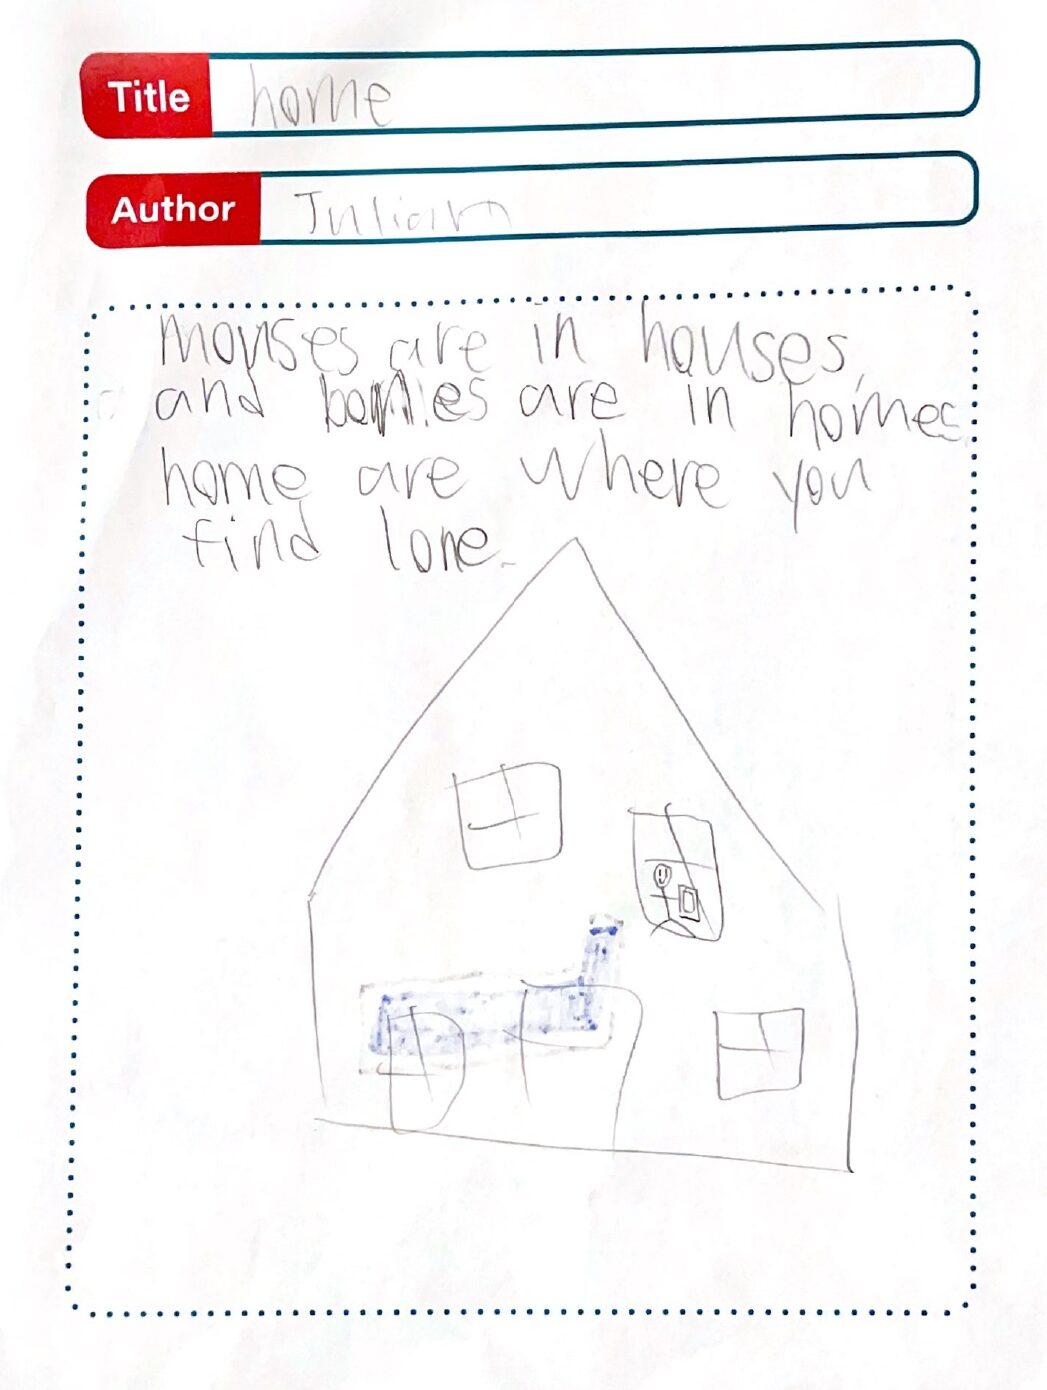 Title home
Author Julian
mouses are in houses,
and are in homes.
home are where you
find lone.